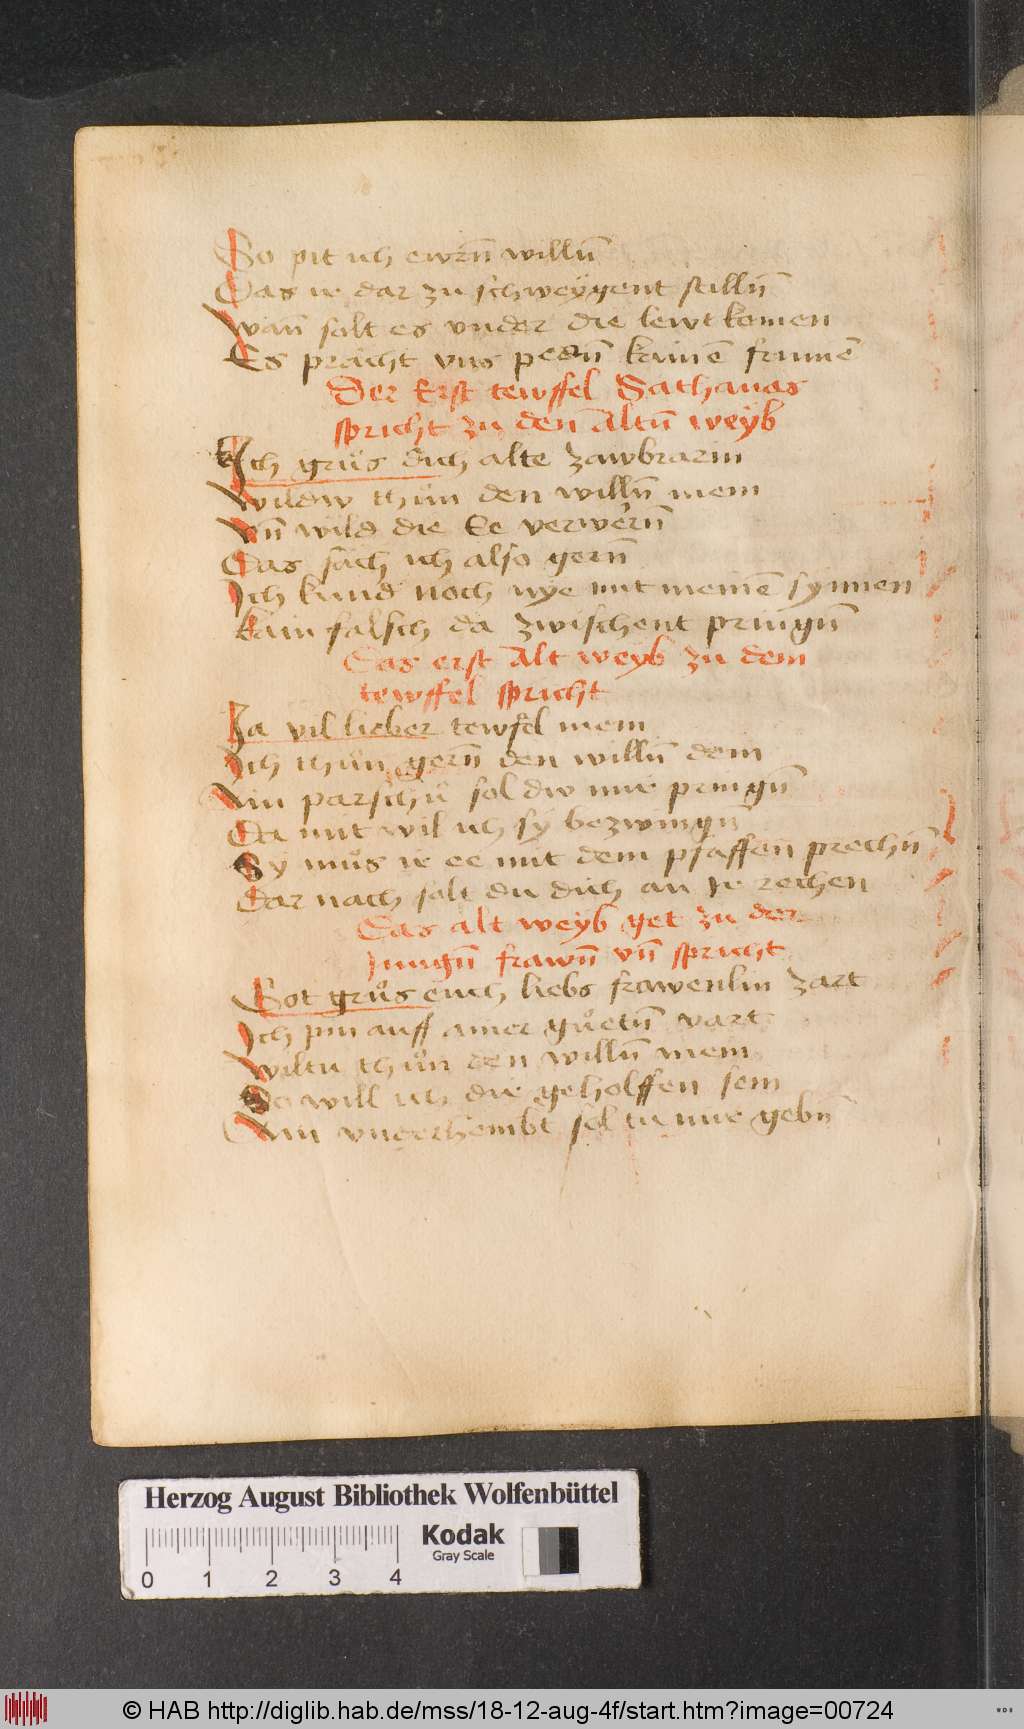 So pit ich ewrn̄ willn̄
Das ir dar zu schweÿgent stilln̄
Wan̄ solt es vnder die lewt komen
Es prächt vns pedn̄ kainē frumē
Der Erst tewffel Sathanas
spricht zu den Altn̄ weÿb
Ich grüs dich alte zawbrarin
Wildw thůn den willn̄ mein
Vn̄ wild die Ee verwern̄
Das säch ich also gern̄
Ich kund noch nye mit meinē synnen
Kain falsch da zwischent pringn̄
Das erst Alt weyb zu dem
tewffel spricht
Ja vil lieber tewfel mein
Ich thůn gern̄ den willn̄ dein
Ain par schů sol dw mir pringn̄
Da mit wil ich sy bezwingn̄
Sy můs ir ee mit dem pfaffen prechn̄
Dar nach solt du dich an ir rechen
Das alt weyb get zu der
Jungn̄ frawn̄ vn̄ spricht
Got grůs euch liebs frawenlin zart
Ich pin auff ainer gůetn̄ vart
Wiltu thůn den willn̄ mein
So will ich dir geholffen sein
Ain vnderhembt soltu mir gebn̄
Herzog August Bibliothek Wolfenbüttel
Kodak
Gray Scale
0 1 2 3 4
© HAB http://diglib.hab.de/mss/18-12-aug-4f/start.htm?image=00724